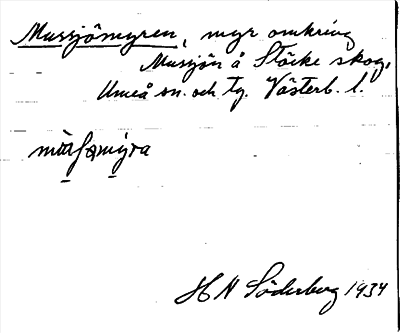 Musjömyren, myr omkring
Musjön å Stöcke skog,
Umeå sn. och tg. Västerb. l.
H N Söderberg 1934